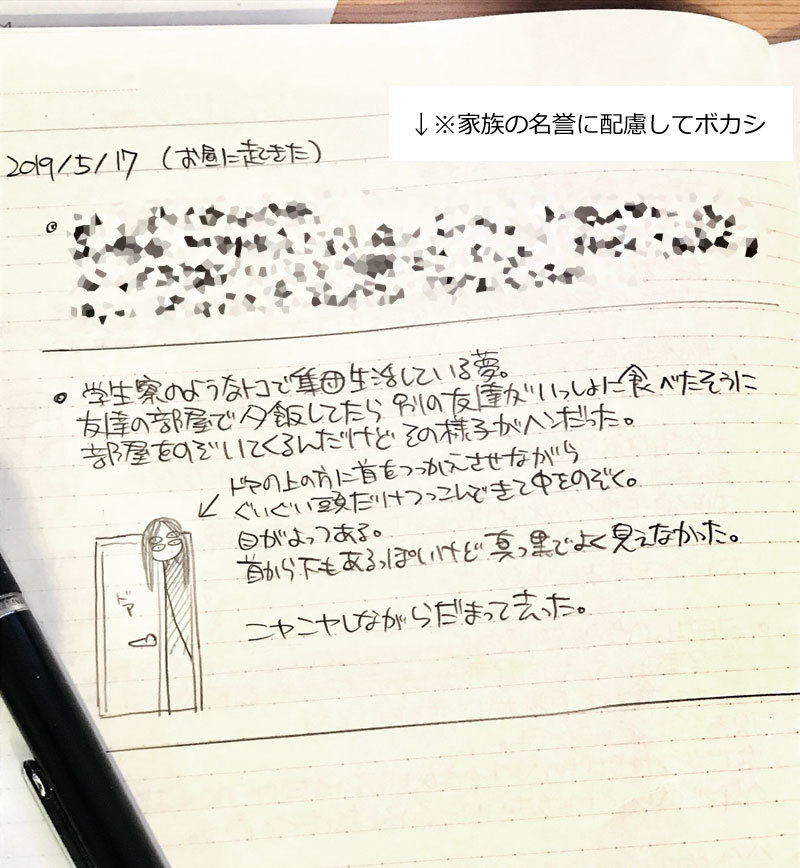 ↓※家族の名誉に配慮してボカシ
2019/5/17 (お昼に起きた)
学生寮のようなトコで集団生活している夢。
友達の部屋で夕飯してたら別の友達がいっしょに食べたそうに
部屋をのぞいてくるんだけどその様子がヘンだった。
ドアの上の方に首をつっかえさせながら
ぐいぐい頭だけつっこんできて中をのぞく。
目がよっつある。
首から下もあるっぽいけど真っ黒でよく見えなかった。
ドア
ニヤニヤしながらだまって去った。